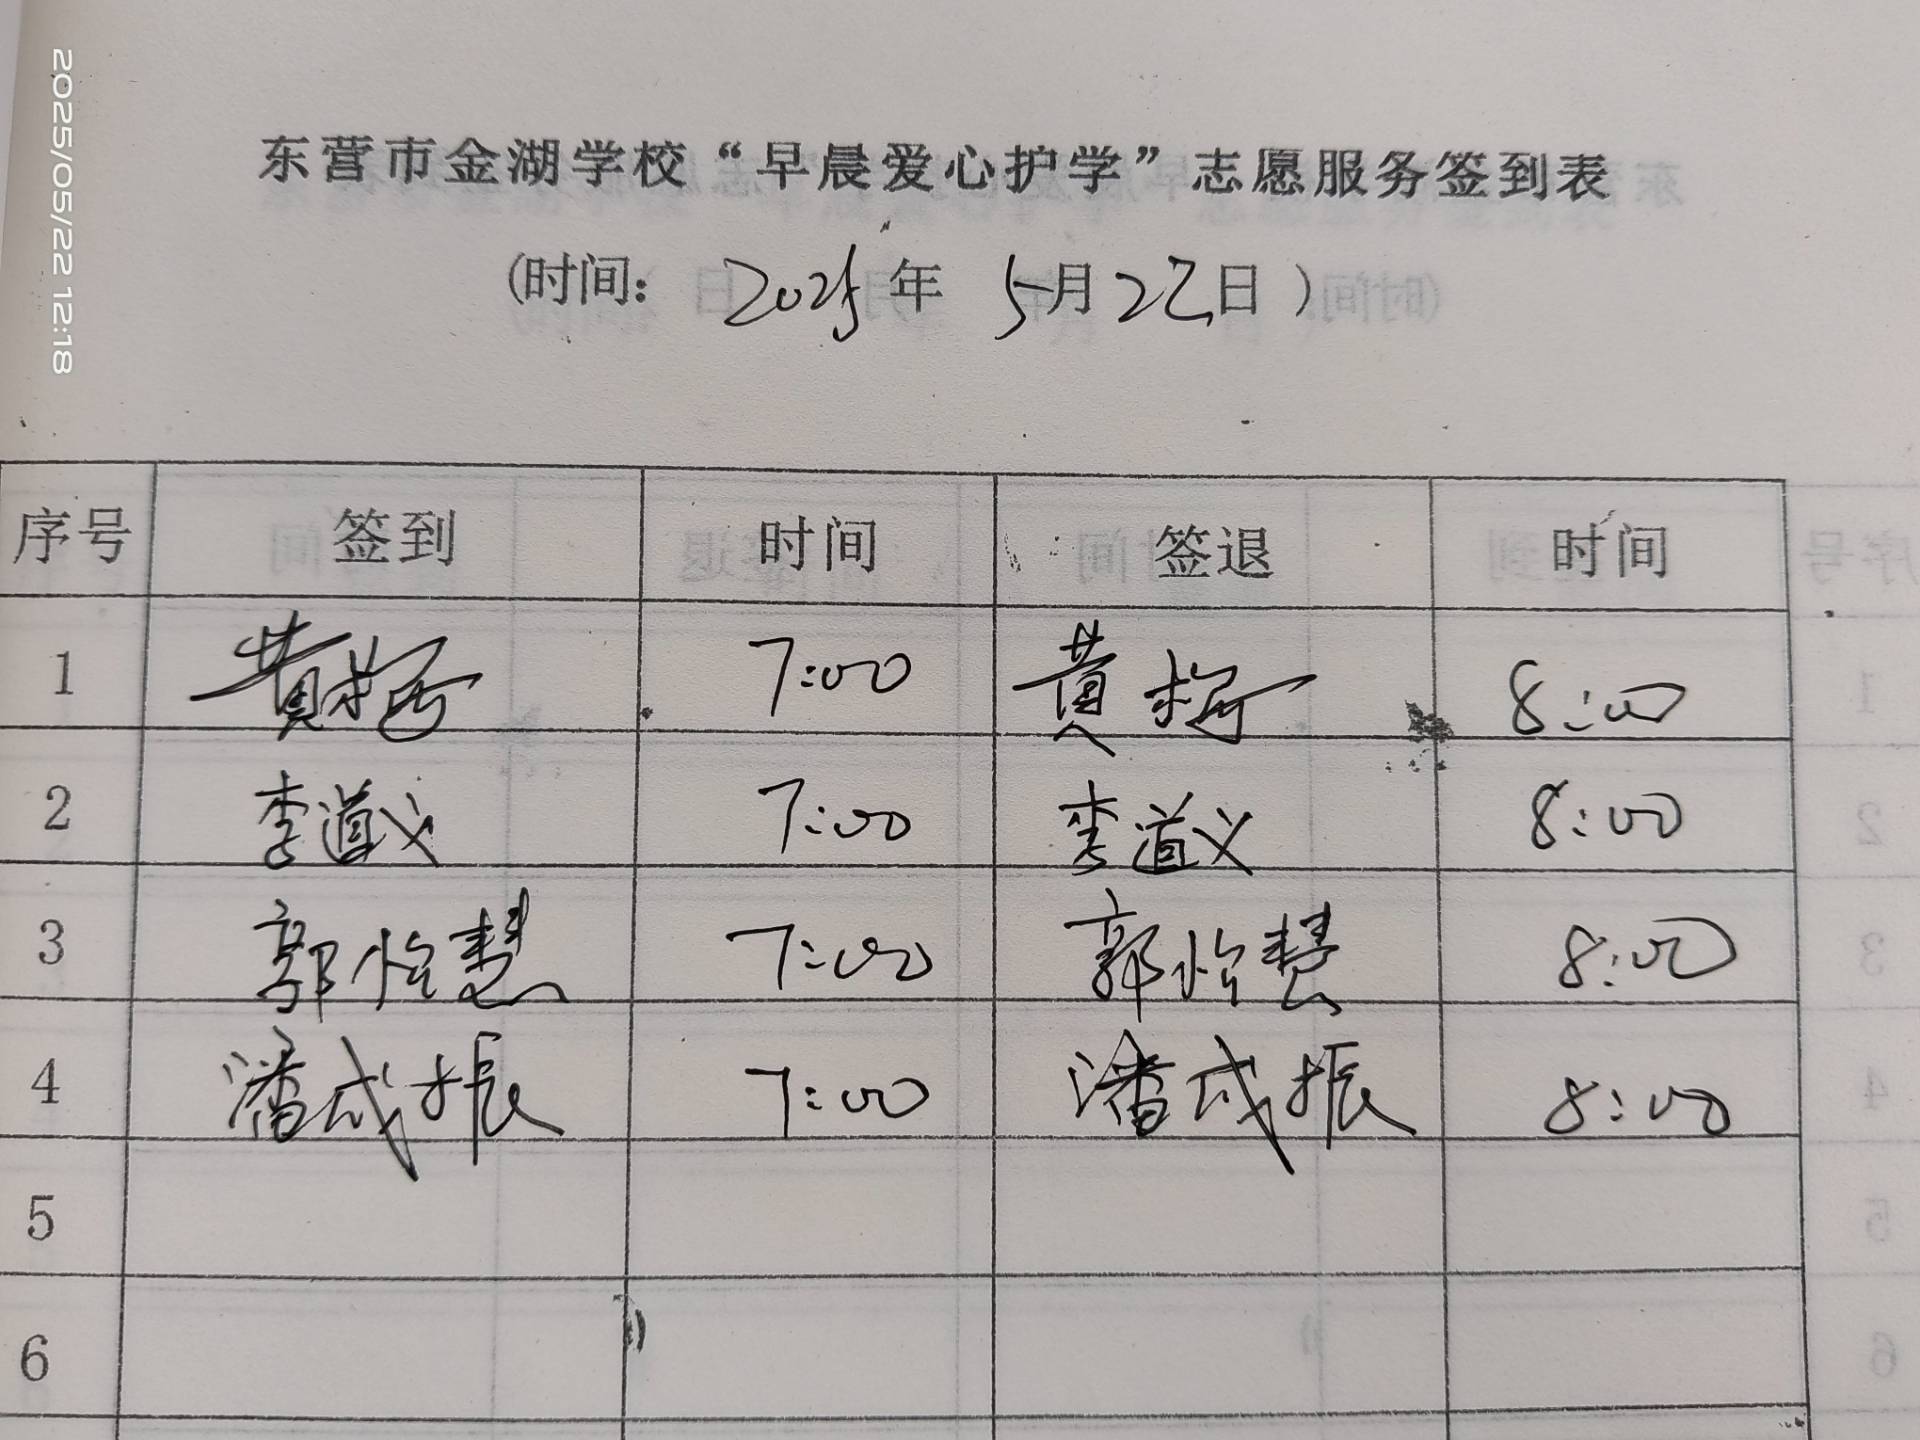 2025/05/22 12:18
东营市金湖学校“早晨爱心护学”志愿服务签到表
(时间: 2025年 5月22日 )
序号 签到 时间 签退 时间
1 黄梅 7:00 黄梅 8:00
2 李道义 7:00 李道义 8:00
3 郭怡慧 7:00 郭怡慧 8:00
4 潘成振 7:00 潘成振 8:00
5
6